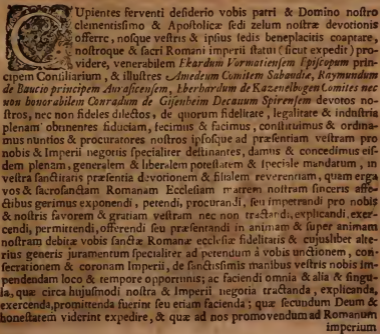 CUpientes ferventi desiderio vobis patri & Domino nostro
clementissimo & Apostolicæ sedi zelum nostræ devotionis
offerre, nosque vestris & ipsius sedis beneplacitis coaptare,
nostroque & sacri Romani imperii statui (sicut expedit) pro-
videre, venerabilem Ekardum Vormatiensem Episcopum prin-
cipem Consiliarium, & illustres Amedeum Comitem Sabaudiæ, Raymundum
de Baucio principem Aurasicensem, Eberhardum de Kazenelbogen Comites nec
non honorabilem Conradum de Gisenheim Decanum Spirensem devotos no-
stros, nec non fideles dilectos, de quorum fidelitate, legalitate & industria
plenam obtinentes fiduciam, fecimus & facimus, constituimus & ordina-
mus nuntios & procuratores nostros ipsosque ad præsentiam vestram pro
nobis & Imperii negotiis specialiter destinantes, damus & concedimus eis-
dem plenam, generalem & liberalem potestatem & speciale mandatum, in
vestra sanctitatis præsentia devotionem & filialem reverentiam, quam erga
vos & sacrosanctam Romanam Ecclesiam matrem nostram sinceris affe-
ctibus gerimus exponendi, petendi, procurandi, seu impetrandi pro nobis
& nostris favorem & gratiam vestram nec non tractandi, explicandi, exer-
cendi, permittendi, offerendi seu præsentandi in animam & super animam
nostram debitæ vobis sanctæ Romanæ ecclesiæ fidelitatis & cujuslibet alte-
rius generis juramentum specialiter ad petendum à vobis unctionem, con-
secrationem & coronam Imperii, de sanctissimis manibus vestris nobis im-
pendendam loco & tempore opportunis; ac faciendi omnia & alia & singu-
la, quæ circa hujusmodi nostra & Imperii negotia tractanda, explicanda,
exercenda, promittenda fuerint seu etiam facienda; quæ secundum Deum &
honestatem viderint expedire, & quæ ad nos promovendum ad Romanum
imperium